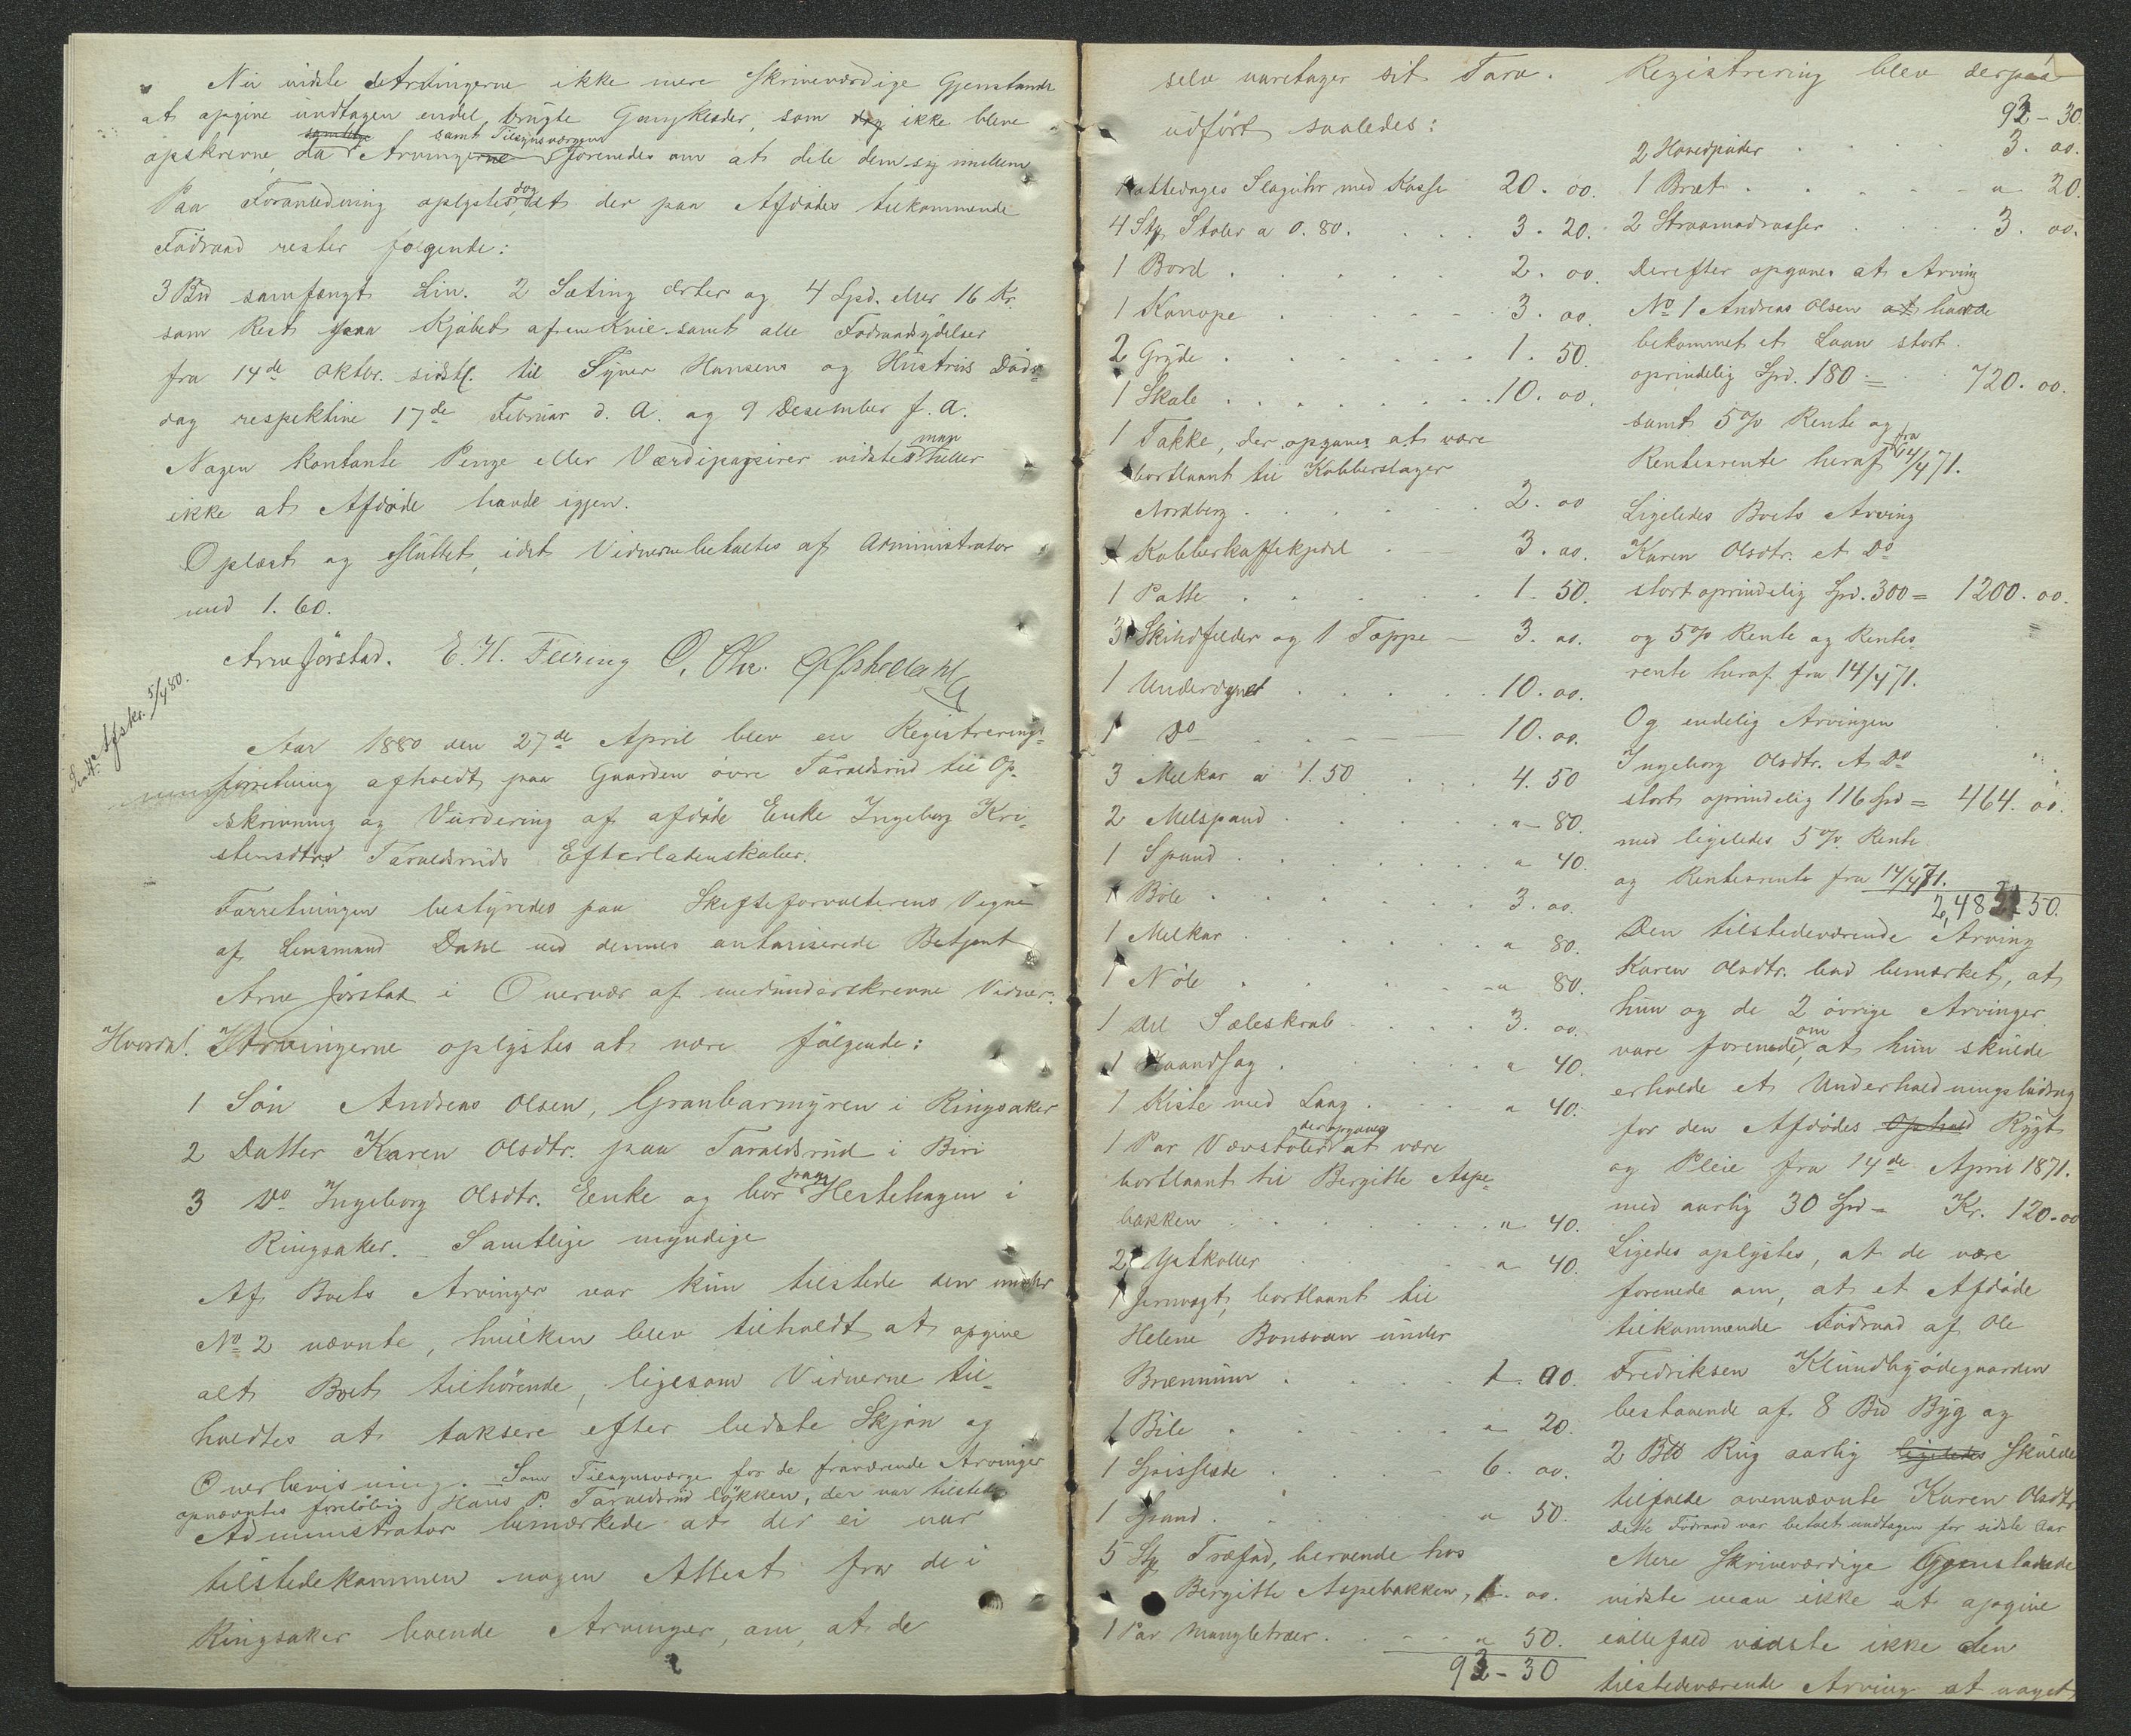 Nu vidste Arvingerne ikke mere skriveværdige Gjenstande
at opgive undtagen endel brugte Gangklæder, som dog ikke bleve
opskrevne, da samtlige Arvingerne samt Tilsynsværgen forenedes om at dele dem sig imellem
Paa Foranledning oplystes dog at der paa Afdødes tilkommende
Födraad rester følgende:
3 Bd samfængt Lin. 2 Sæting Erter og 4 Spd. eller 16 Kr.
som Rest paa Kjøbet af en Kvie samt alle Födraadsydelser
fra 14de Oktbr. sidstl. til Syver Hansens og Hustrus Döds-
dag respektive 17de Februar d. A. og 9 Desember f. A.
Nogen kontante Penge eller Værdipapirer vidste man heller
ikke at Afdöde havde igjen.
Oplæst og sluttet, idet Vidnerne betaltes af Administrator
med 1. 60.
Arne Jörstad. E. H. Feiring O. Chr.
Indt. Afskr. 5/4 80.
Aar 1880 den 27de April blev en Registrerings-
forretning afholdt paa Gaarden övre Taraldsrud til Op-
skrivning og Vurdering af afdöde Enke Ingeborg Kri-
stensdtrs Taraldsruds Efterladenskaber.
Forretningen bestyredes paa Skifteforvalterens Vegne
af Lensmand Dahl ved dennes autoriserede Betjent
Arne Jörstad i Overvær af medunderskrevne Vidner.
Hvorda! Arvingerne oplystes at være fölgende:
1 Sön Andreas Olsen, Granbarmyren i Ringsaker
2 Datter Karen Olsdtr. paa Taraldsrud i Biri
3 Do Ingeborg Olsdtr. Enke og bor paa Hestehagen i
Ringsaker. Samtlige myndige
Af Boets Arvinger var kun tilstede den under
No 2 nævnte, hvilken blev tilholdt at opgive
alt Boet tilhörende, ligesom Vidnerne til-
holdtes at taksere efter bedste Skjön og
Overbevisning. Som Tilsynsværge for de fraværende Arvinger
opnævntes foreløbig Hans P. Taraldsrud lökken, der var tilstede
Administrator bemærkede at der ei var
tilstedekommen nogen Attest fra de i
Ringsaker boende Arvinger, om, at de
selv varetager sit Tarv. Registrering blev derpaa
udfört saaledes:
1 ottedages Slaguhr med Kasse 20. 00.
4 Stk. Stoler a 0.80. 3. 20.
1 Bord 2. 00.
1 Kanape 3. 00.
2 Gryde 1. 50.
1 Skab 10. 00.
1 Takke, der opgives at være
bortlaant til Kobberslager
Nordberg 2. 00
1 Kobberkaffekjedel 3. 00.
1 Potte 1. 50.
3 Skindfelder og 1 Tæppe 3. 00.
1 Underdyne 10. 00.
1 Do 10. 00.
3 Melkar a 1.50 4. 50
2 Melspand " 80.
1 Spand " 40.
1 Böle 3. 00.
1 Melkar " 80.
1 Nöle " 80.
1 Del Sæleskrab 3. 00.
1 Haandsag " 40.
1 Kiste med Laag " 40.
1 Par Vævstoler der opgives at være
bortlaant til Bergitte Aspe-
bakken " 40.
2 Ystkoller " 40.
1 Jernvægt, bortlaant til
Helene Bonsveen under
Brænnum 1. 00.
1 Bile " 20.
1 Spisslæde 6. 00.
1 Spand " 50.
5 Stk Træfad, beroende hos
Bergitte Aspebakken, 1. 00.
1 Par Mangletræer " 50.
93 - 30
93 - 30.
2 Hovedpuder 3. 00.
1 Bræt " 20
2 Straamadrasser 3. 00.
Derefter opgives at Arving
No 1 Andreas Olsen at havde
bekommet et Laan stort
oprindelig Spd. 180 = 720. 00.
samt 5 % Rente og
Rentesrente heraf fra 14/4 71.
Ligeledes Boets Arving
Karen Olsdtr. et Do
stort oprindelig Spd. 300 = 1200. 00.
og 5 % Rente og Rentes-
rente heraf fra 14/4 71.
Og endelig Arvingen
Ingeborg Olsdtr. et Do
stort oprindelig 116 Spd = 464. 00.
med ligeledes 5 % Rente
og Rentesrente fra 14/4 71.
2,483 50.
Den tilstedeværende Arving
Karen Olsdtr. bad bemærket, at
hun og de 2 övrige Arvinger
vare forenede om, at hun skulde
erholde et Underholdningsbidrag
for den Afdödes Ophold Rögt
og Pleie fra 14de April 1871.
med aarlig 30 Spd = Kr. 120.00
Ligedes oplystes, at de vare
forenede om, at et Afdöde
tilkommende Födraad af Ole
Fredriksen Klundbyödegaarden
bestaaende af 8 Bd Byg og
2 Bd Rug aarlig ligeledes skulde
tilfalde ovennævnte Karen Olsdtr
Dette Födraad var betalt undtagen for sidste Aar
Mere skriveværdige Gjenstande
vidste man ikke at opgive
ialtfald vidste ikke den
tilstedeværende Arving at noget